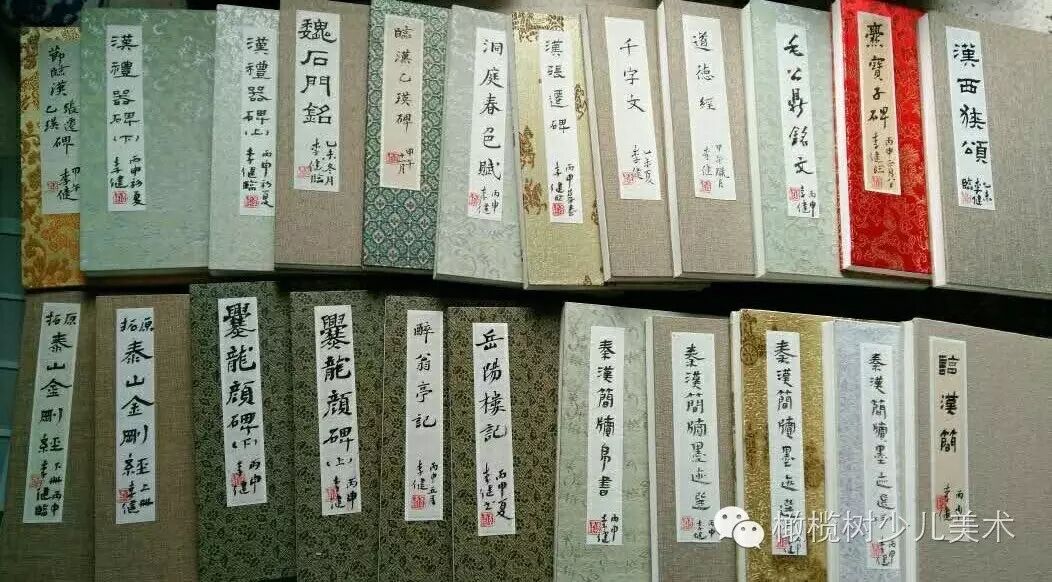 節臨漢張遷碑
漢乙瑛
甲午
李健
漢禮器碑(下)
丙申初夏
李健
漢禮器碑(上)
丙申初夏
李健
魏石門銘
乙未冬月
李健臨
臨漢乙瑛碑
甲午
十二月
洞庭春色賦
丙申
李健
漢張遷碑
丙申
李健臨
千字文
乙未夏
李健
道德經
甲午臘月
李健
毛公鼎銘文
丙申
李健
爨寶子碑
丙申
李健臨
漢西狹頌
乙未
李健臨
原拓
泰山金剛經
下册
丙申
李健臨
原拓
泰山金剛經
上册
李健
爨龍顏碑(下)
丙申
李健
爨龍顏碑(上)
丙申
李健
醉翁亭記
丙申
李健
岳陽樓記
丙申夏
李健
秦漢簡牘帛書
丙申
李健
秦漢簡牘墨迹選
丙申
李健
秦漢簡牘墨迹選
秦漢簡牘墨迹選
丙申
李健
臨漢簡
丙申
李健
橄榄树少儿美术